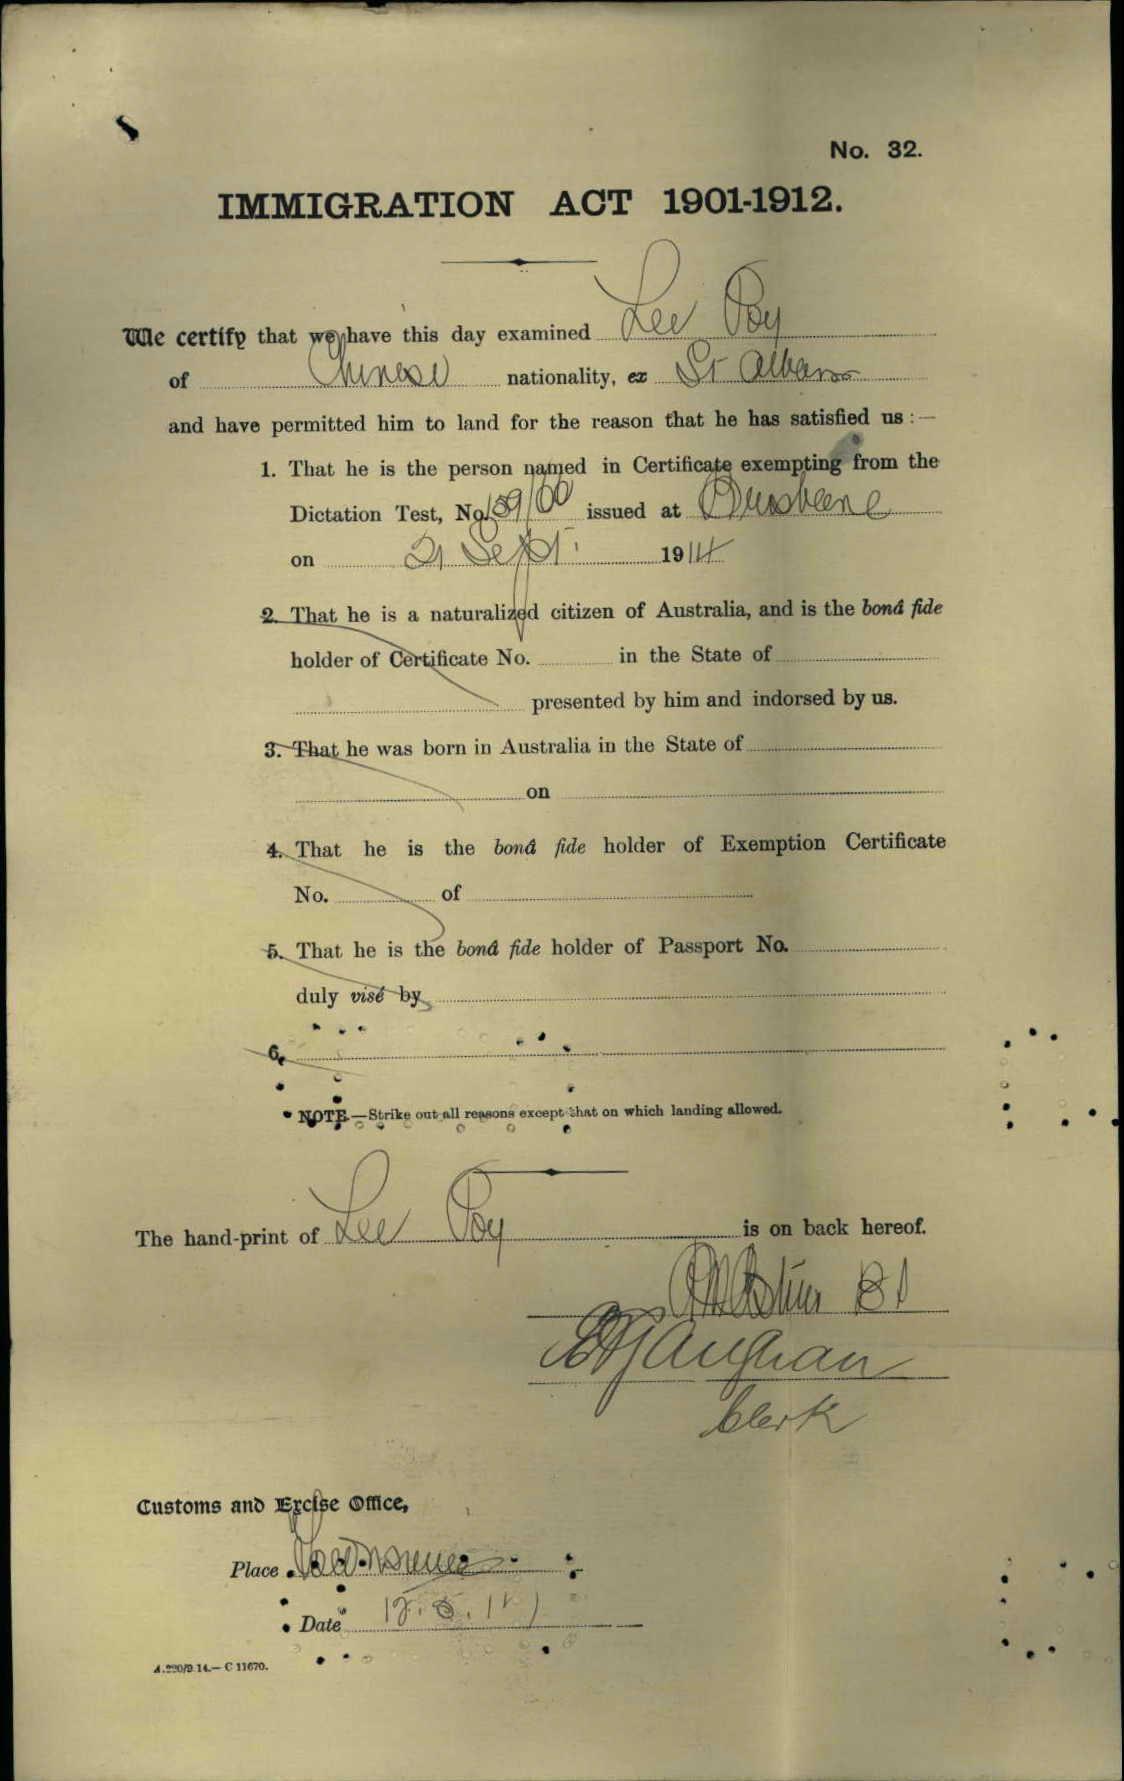 No. 32.
IMMIGRATION ACT 1901-1912.
We certify that we have this day examined Lee Poy
of Chinese nationality, ex St Albans
and have permitted him to land for the reason that he has satisfied us :—
1. That he is the person named in Certificate exempting from the
Dictation Test, No. 159/00 issued at Brisbane
on 21 Sept. 1914
2. That he is a naturalized citizen of Australia, and is the bonâ fide
holder of Certificate No. in the State of
presented by him and indorsed by us.
3. That he was born in Australia in the State of
on
4. That he is the bonâ fide holder of Exemption Certificate
No. of
5. That he is the bonâ fide holder of Passport No.
duly visé by
6.
NOTE.—Strike out all reasons except that on which landing allowed.
The hand-print of Lee Poy is on back hereof.
Clerk
Customs and Excise Office,
Place Townsville
Date
A.220/9.14.— C 11670.